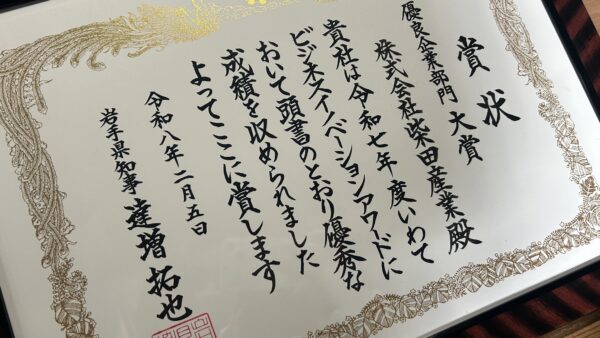 賞状
優良企業部門 大賞
株式会社柴田産業殿
貴社は令和七年度いわて
ビジネスイノベーションアワードに
おいて頭書のとおり優秀な
成績を収められました
よってここに賞します
令和八年二月五日
岩手県知事 達増拓也